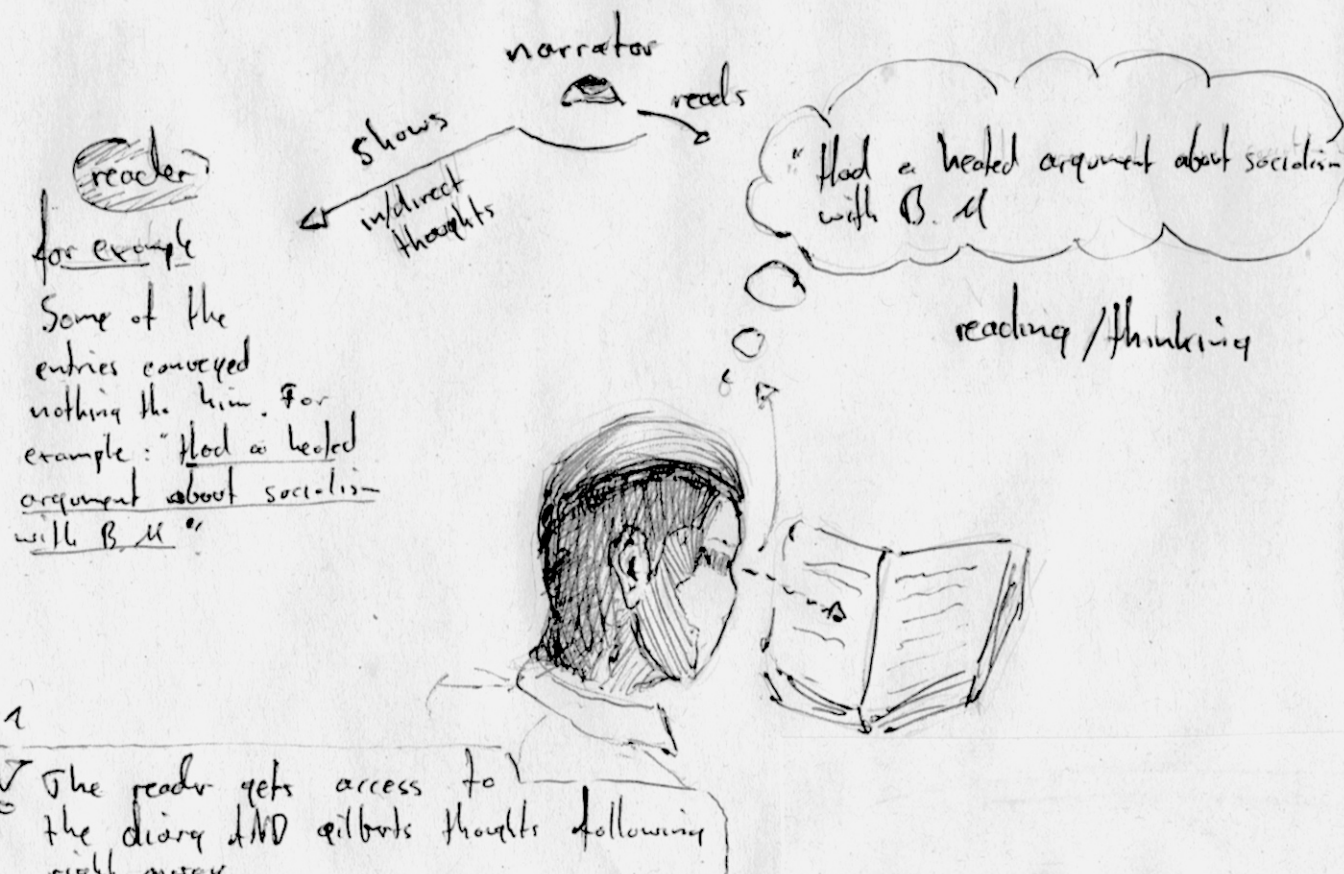 narrator
reads
shows
in/direct
thoughts
reader
for example
Some of the
entries conveyed
nothing the him. For
example: "Had a heated
argument about socialism
with B.M"
"Had a heated argument about socialism
with B.M
reading/thinking
1
The reader gets access to
the diary AND gilberts thoughts following
right away